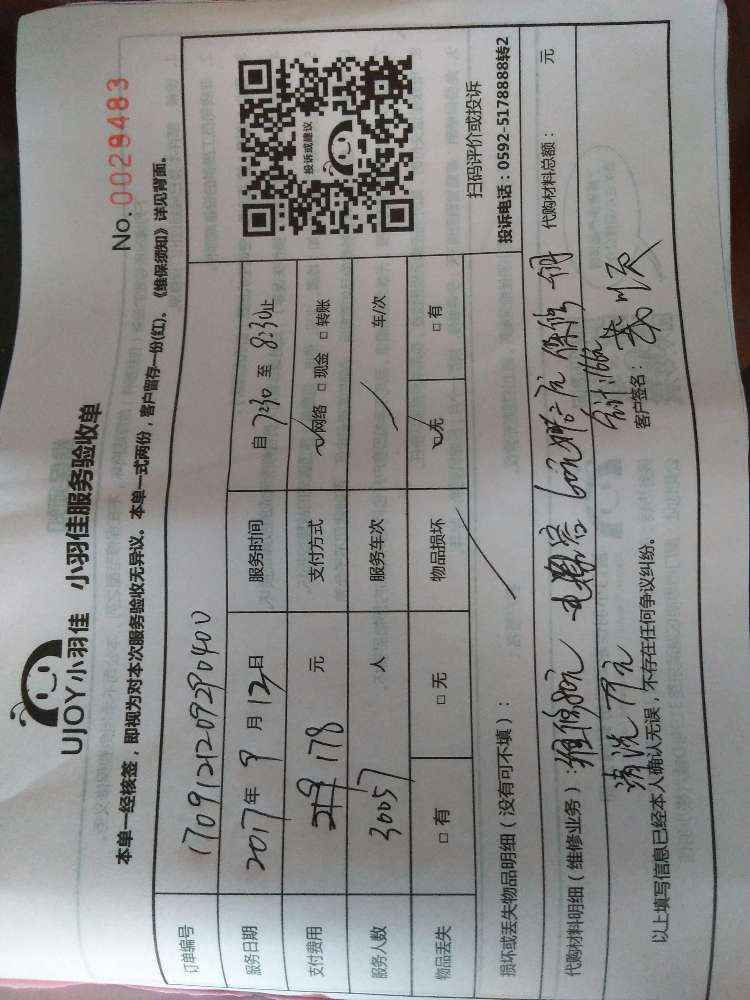 UJOY小羽佳 小羽佳服务验收单
No.0029483
本单一经核签，即视为对本次服务验收无异议。本单一式两份，客户留存一份(红)。《维保须知》详见背面。
订单编号 1709121209290400
服务日期 2017年9月12日 服务时间 自7:30至8:30止
支付费用 178 元 支付方式 ☑网络 □现金 □转账
服务人数 30057 人 服务车次 车/次
物品丢失 □有 □无 物品损坏 ☑无 □有
投诉或建议
扫码评价或投诉
投诉电话：0592-5178888转2
损坏或丢失物品明细（没有可不填）：
代购材料明细（维修业务）：维修80元 电容 60元 保修 代购材料总额： 元
清洗79元
以上填写信息已经本人确认无误，不存在任何争议纠纷。 客户签名：